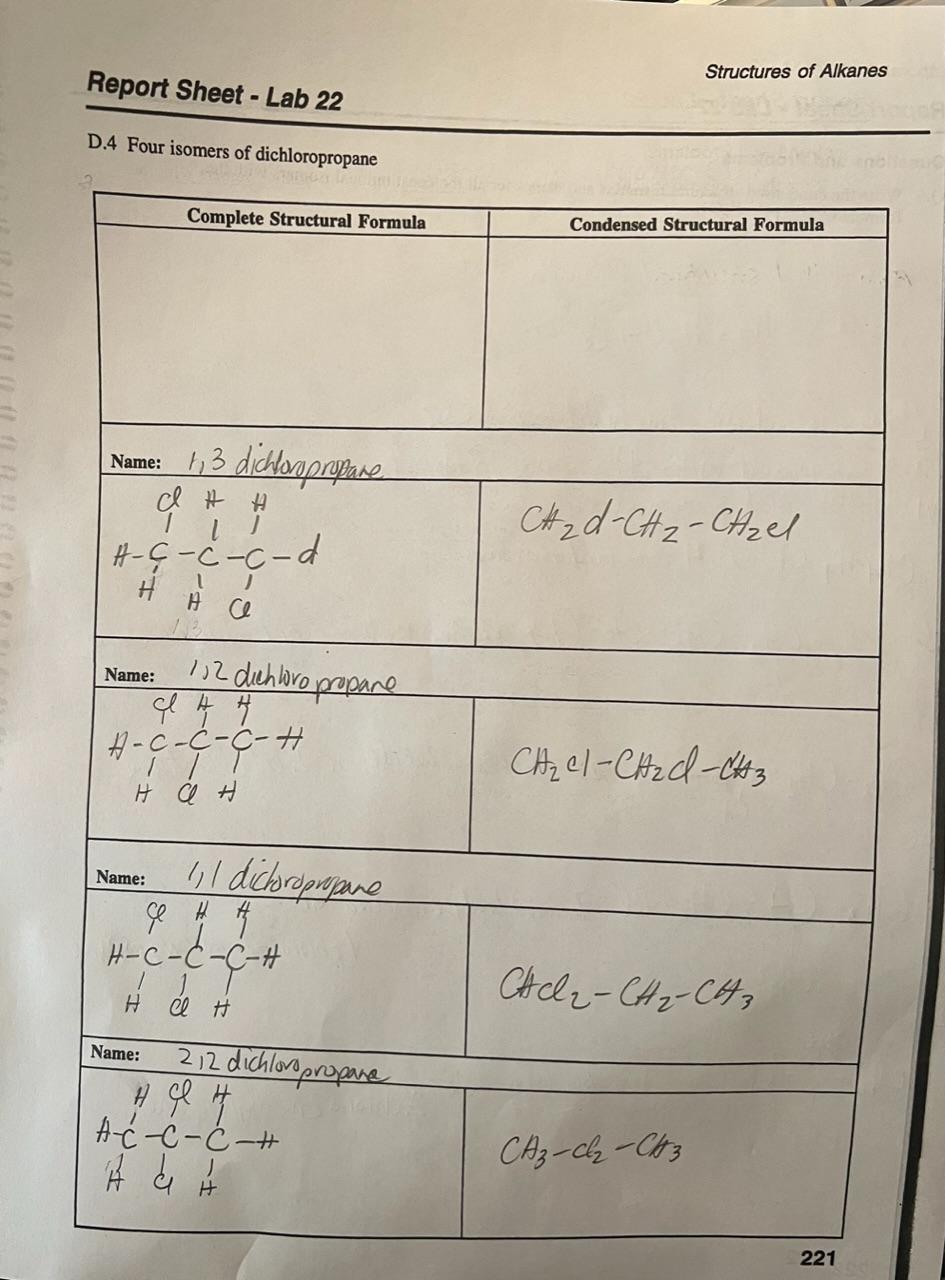 Structures of Alkanes
Report Sheet - Lab 22
D.4 Four isomers of dichloropropane
Complete Structural Formula
Condensed Structural Formula
Name: 1,3 dichloropropane
Cl H H
H-C-C-C-Cl
H H Cl
1,3
CH2Cl-CH2-CH2Cl
Name: 1,2 dichloropropane
Cl H H
H-C-C-C-H
H Cl H
CH2Cl-CH2Cl-CH3
Name: 1,1 dichoropropane
Cl H H
H-C-C-C-H
H Cl H
CHCl2-CH2-CH3
Name: 2,2 dichloropropane
H Cl H
H-C-C-C-H
H Cl H
CH3-Cl2-CH3
221